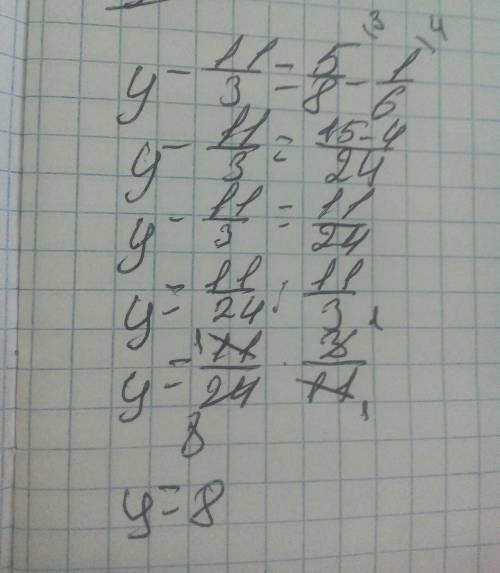 y - 11/3 = 5/8 \3 - 1/6 \4
y - 11/3 = 15-4/24
y - 11/3 = 11/24
y = 11/24 : 11/3
y = 11 1/24 8 · 3 1/11 1
y = 8